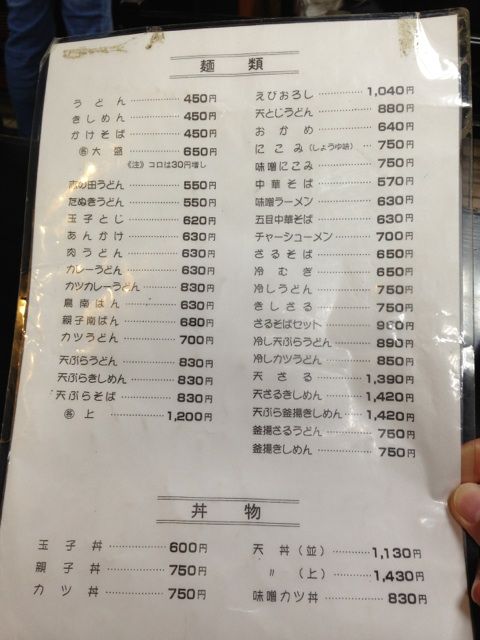 麺類
うどん 450円
きしめん 450円
かけそば 450円
㊎大盛 650円
《注》コロは30円増し
志の田うどん 550円
たぬきうどん 550円
玉子とじ 620円
あんかけ 630円
肉うどん 630円
カレーうどん 630円
カツカレーうどん 830円
鳥南ばん 630円
親子南ばん 680円
カツうどん 700円
天ぷらうどん 830円
天ぷらきしめん 830円
天ぷらそば 830円
上 1,200円
えびおろし 1,040円
天とじうどん 880円
おかめ 640円
にこみ(しょうゆ味) 750円
味噌にこみ 750円
中華そば 570円
味噌ラーメン 630円
五目中華そば 630円
チャーシューメン 700円
ざるそば 650円
冷むぎ 650円
冷しうどん 750円
きしざる 750円
ざるそばセット 900円
冷し天ぷらうどん 890円
冷しカツうどん 850円
天ざる 1,390円
天ざるきしめん 1,420円
天ぷら釜揚きしめん 1,420円
釜揚ざるうどん 750円
釜揚きしめん 750円
丼物
玉子丼 600円
親子丼 750円
カツ丼 750円
天丼(並) 1,130円
〃(上) 1,430円
味噌カツ丼 830円